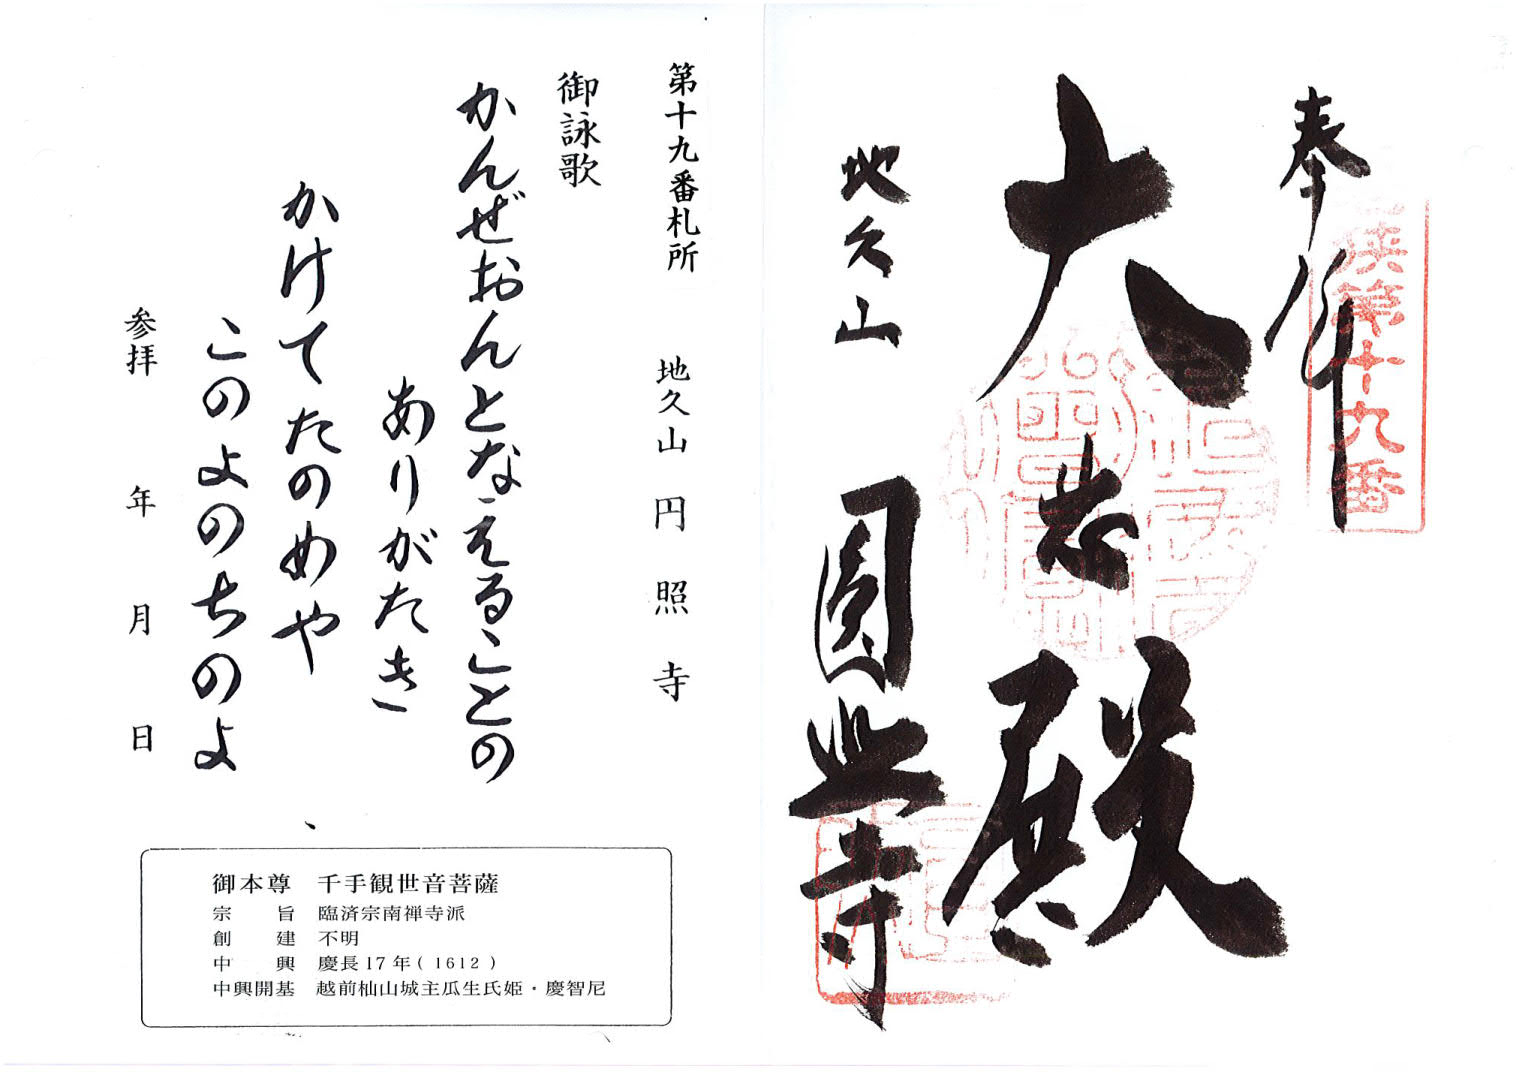 奉拝
大悲殿
地久山
圓照寺
第十九番
第十九番札所 地久山 円照寺
御詠歌
かんぜおんとなえることの
ありがたき
かけてたのめや
このよのちのよ
参拝 年 月 日
御本尊 千手観世音菩薩
宗旨 臨済宗南禅寺派
創建 不明
中興 慶長17年(1612)
中興開基 越前杣山城主瓜生氏姫・慶智尼